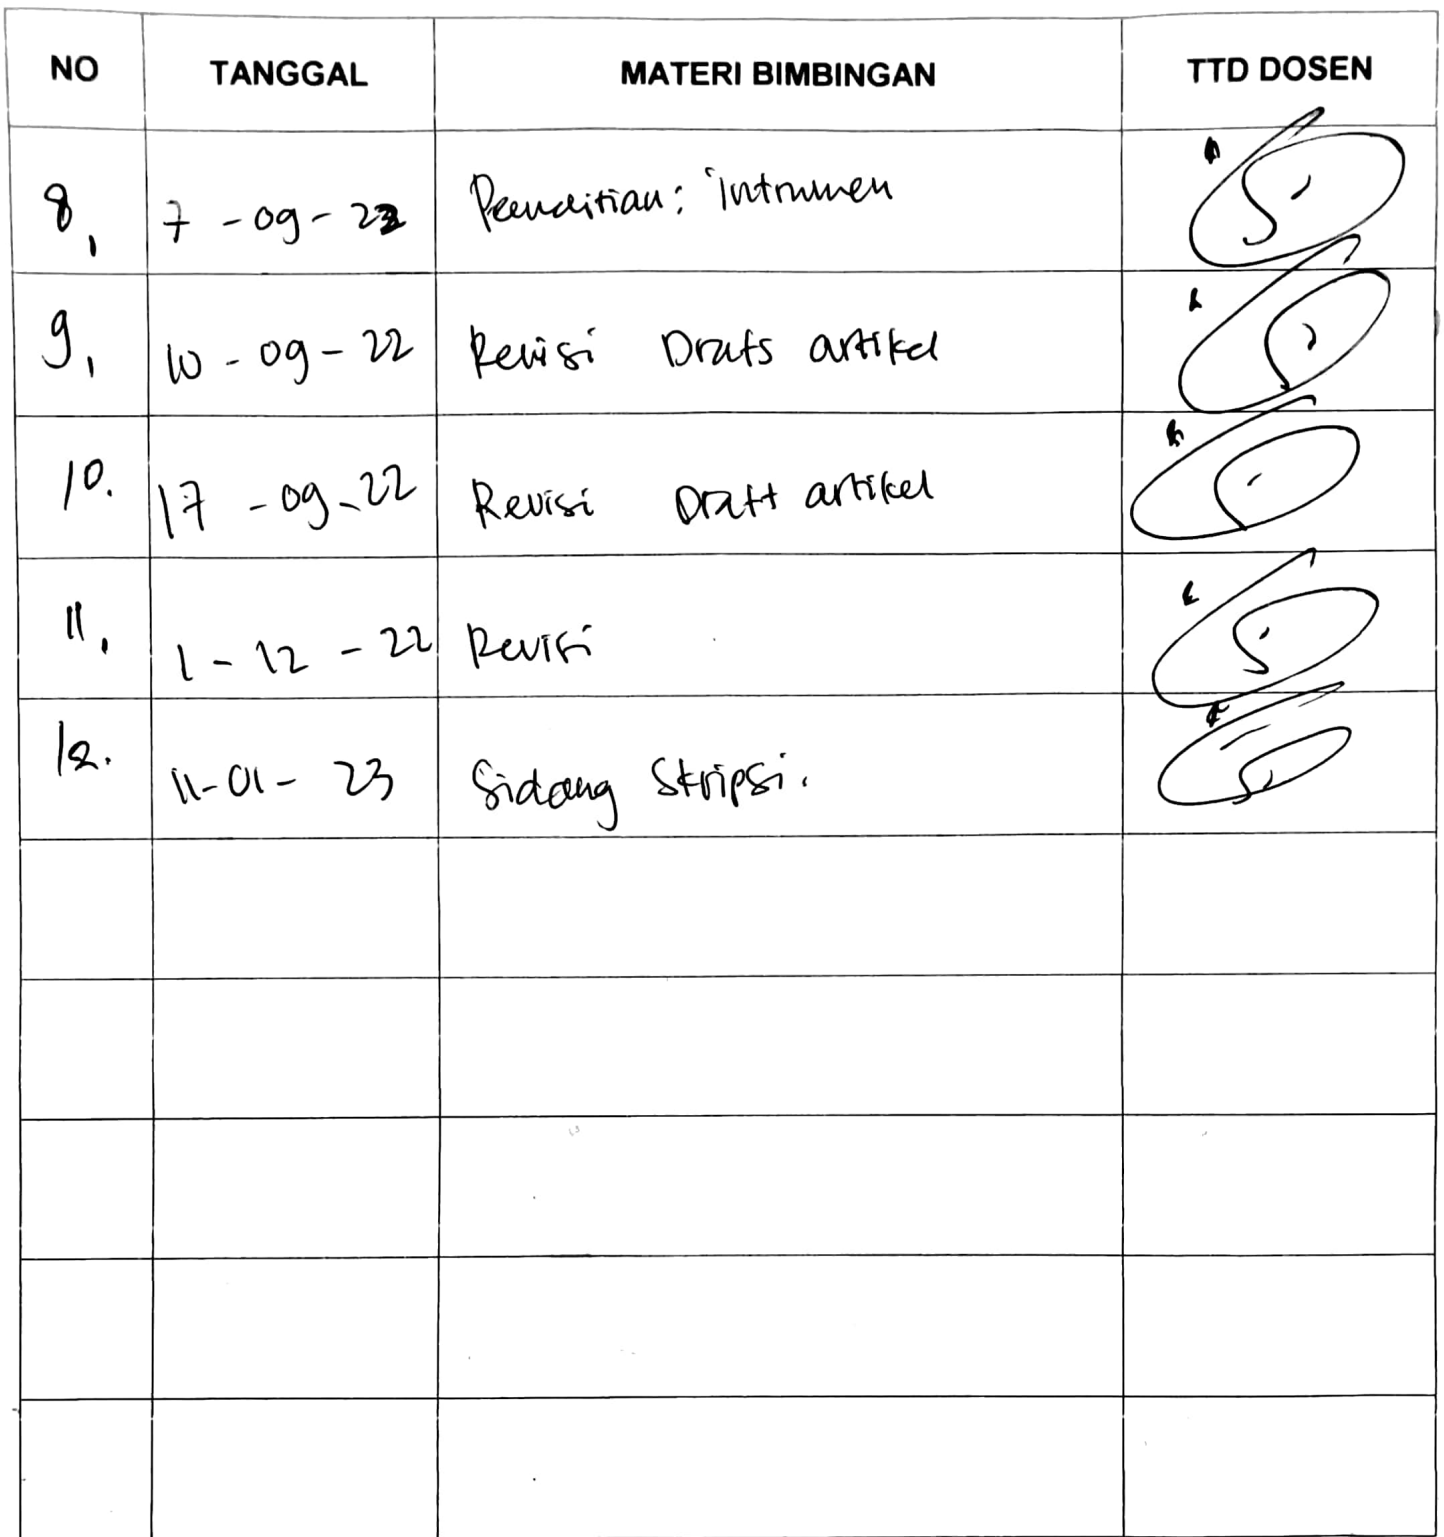 NO TANGGAL MATERI BIMBINGAN TTD DOSEN
8, 7 - 09 - 22 : intrumen
9, 10 - 09 - 22 Revisi Drafs artikel
10. 17 - 09 - 22 Revisi Draft artikel
11, 1 - 12 - 22 Revisi
12. 11-01- 23 Sidang Skripsi.